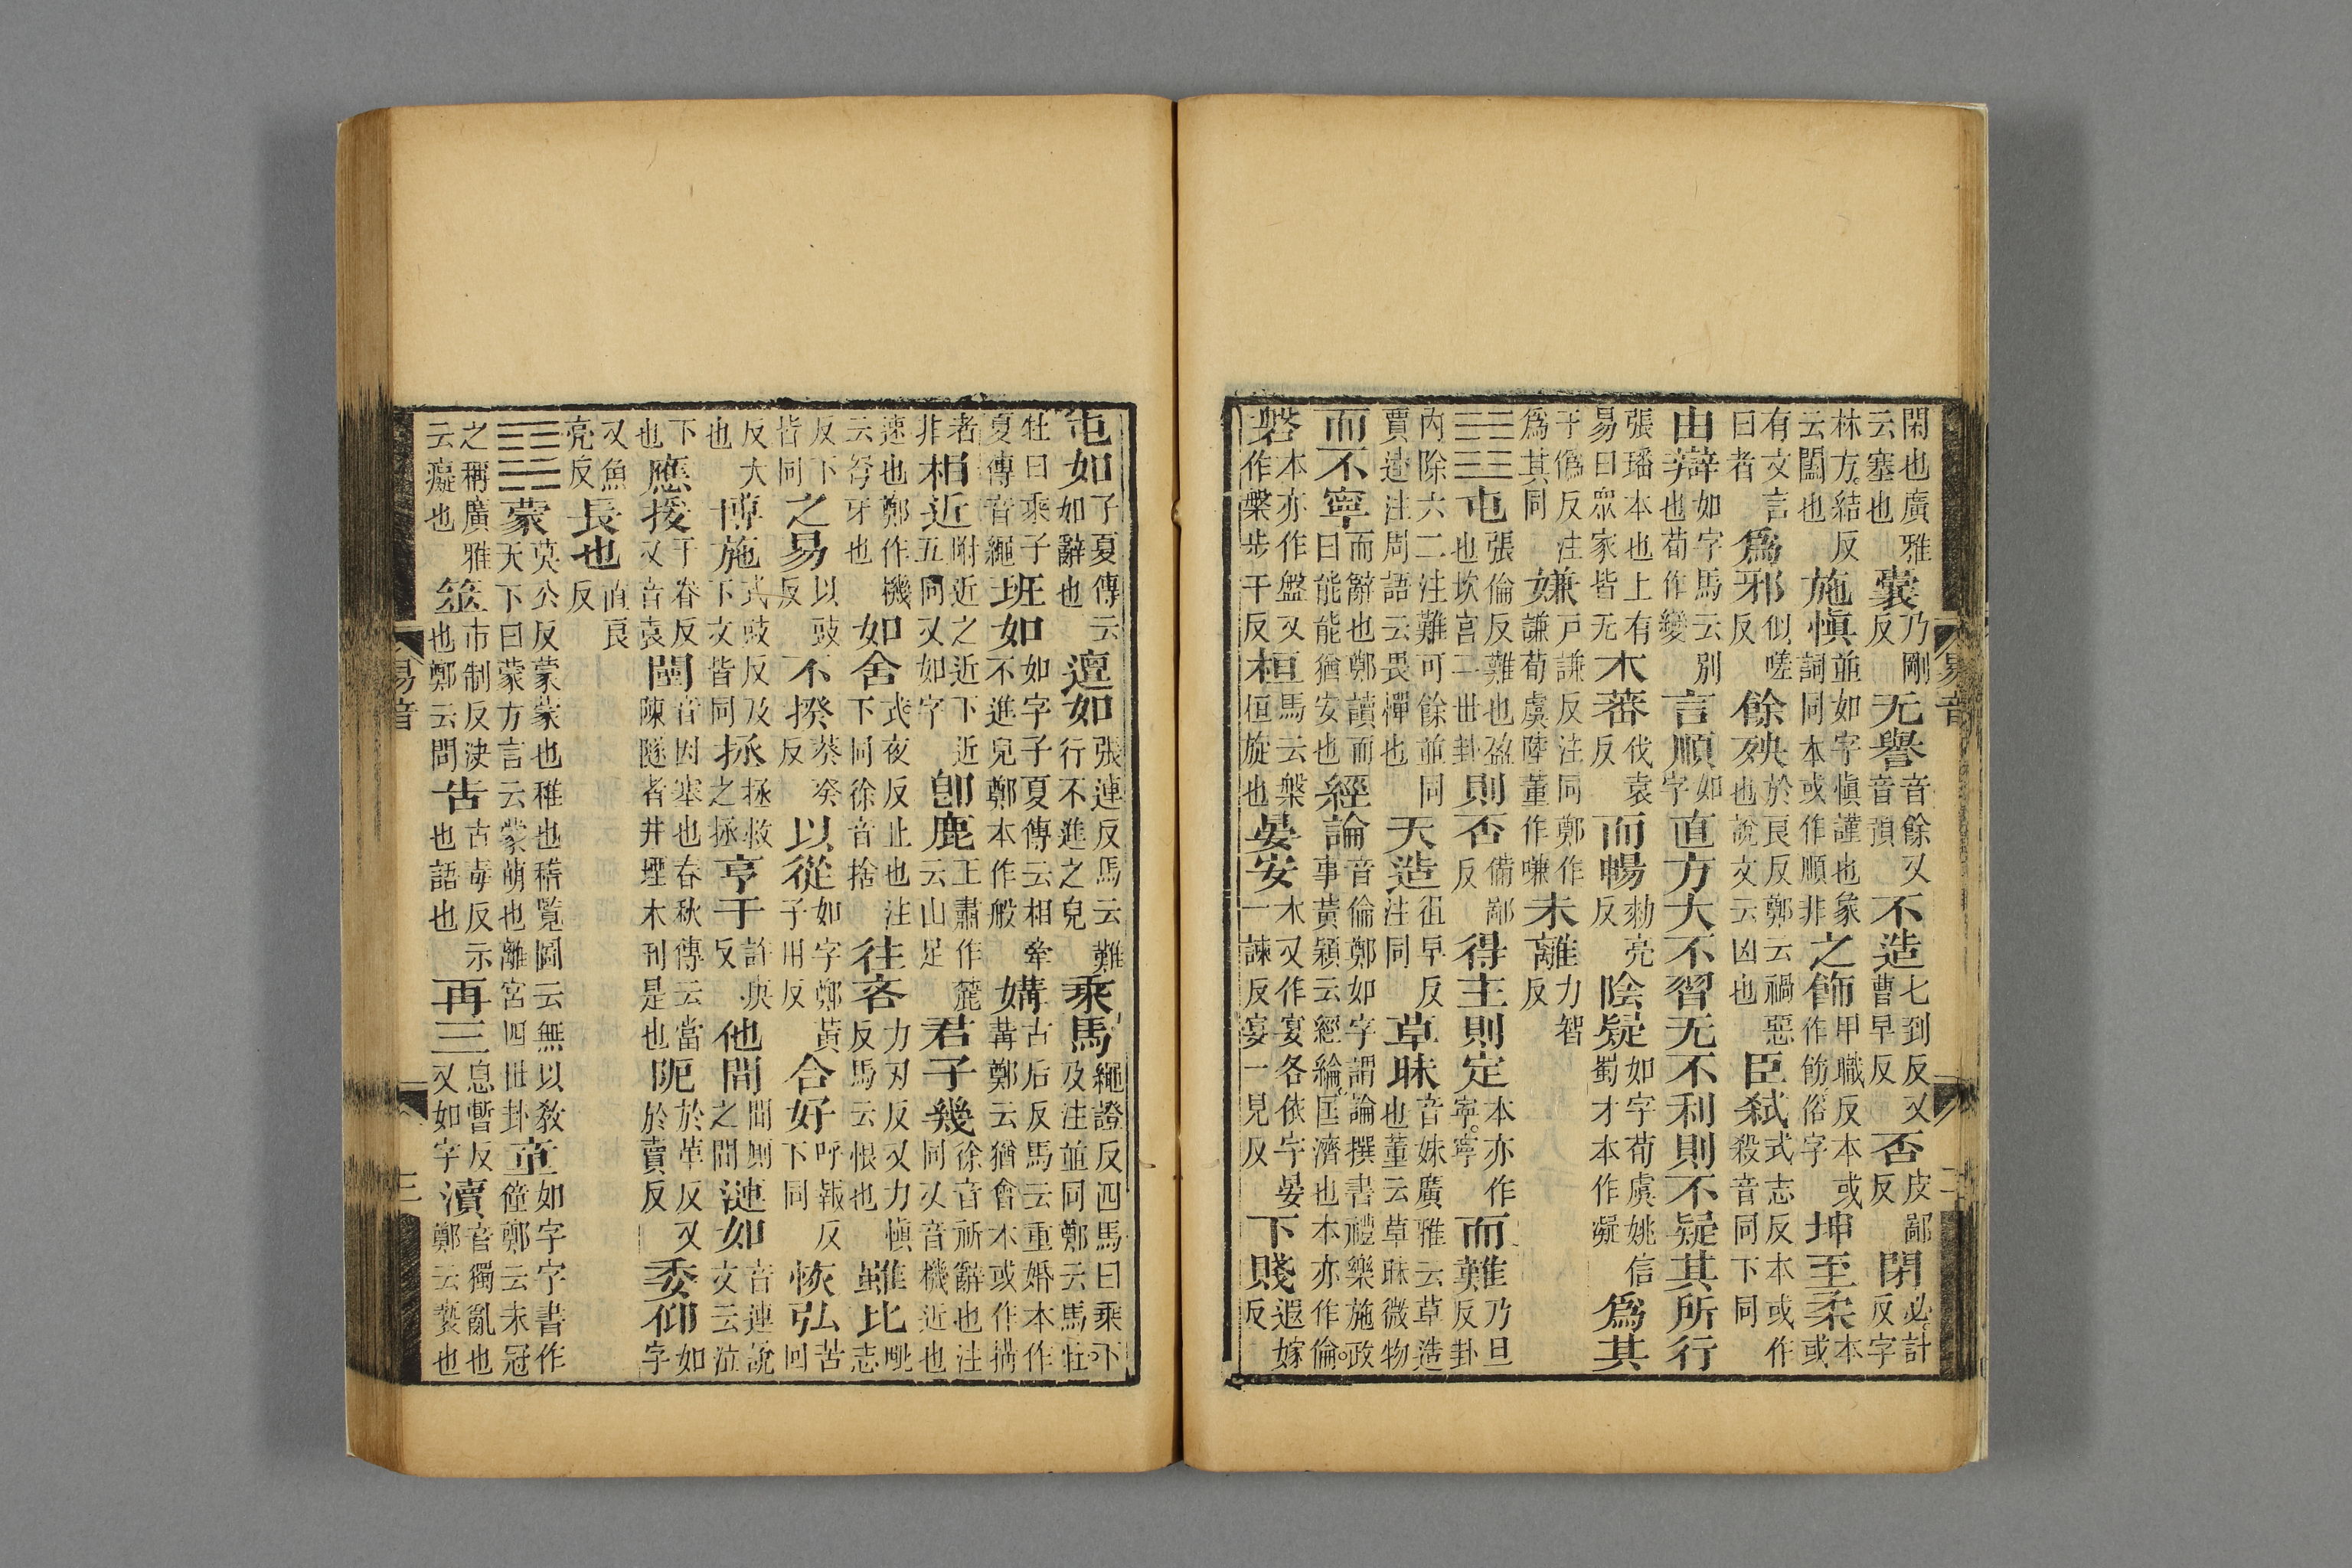 閑也廣雅云塞也囊乃剛反无譽音餘又音預不造七到反又曹早反否皮鄙反閉必計反字
林方結反云闔也施慎並如字慎謹也象詞同本或作順非之飾申職反本或作餝俗字坤至柔本或
有文言曰者爲邪似嗟反餘殃於良反鄭云禍惡也說文云凶也臣弑式志反本或作殺音同下同
由辯如字馬云別也荀作變言順如字直方大不習无不利則不疑其所行
張璠本也上有易曰眾家皆无木蕃伐袁反而暢勑亮反陰疑如字荀虞姚信蜀才本作凝爲其
于僞反注爲其同嫌戶謙反注同鄭作謙荀虞陸董作嗛未離力智反
䷂屯張倫反難也盈也坎宮二世卦則否備鄙反得主則定本亦作寧寧而難乃旦反卦
内除六二注難可餘並同賈逵注周語云畏憚也天造徂早反注同草昧音妹廣雅云草造也董云草昧微物
而不寧而辭也鄭讀而曰能能猶安也經論音倫鄭如字謂論撰書禮樂施政事黃穎云經綸匡濟也本亦作倫
磐本亦作盤又作槃步干反桓馬云槃桓旋也晏安本又作宴各依字晏一諫反宴一見反下賤遐嫁反
易音 二
屯如子夏傳云如辭也邅如張連反馬云難行不進之皃乘馬繩證反四馬曰乘下及注並同鄭云馬牝
牡曰乘子夏傳音繩班如如字子夏傳云相牽不進皃鄭本作般媾古后反馬云重婚本作冓鄭云猶會本或作搆
者非相近附近之近下近五同又如字即鹿王肅作麓云山足君子幾徐音祈辭也注同又音機近也
速也鄭作機云弩牙也如舍式夜反止也注下同徐音捨往吝力刃反又力慎反馬云恨也雖比毗志
反下皆同之易以豉反不揆葵癸反以從如字鄭黃子用反合好呼報反下同恢弘苦回
反大也博施式豉反及下文皆同拯拯救之拯亨于許庚反他間間厠之間漣如音連說文云泣
下也應援于眷反又音袁闉音因塞也春秋傳云當陳隧者井堙木刊是也阨於革反又於賣反委仰如字
又魚亮反長也直良反
䷃蒙莫公反蒙蒙也稚也稽覽圖云無以教天下曰蒙方言云蒙萌也離宮四世卦童如字字書作僮鄭云未冠
之稱廣雅云癡也筮市制反決也鄭云問告古毒反示也語也再三息暫反又如字瀆音獨亂也鄭云褻也
易音 三